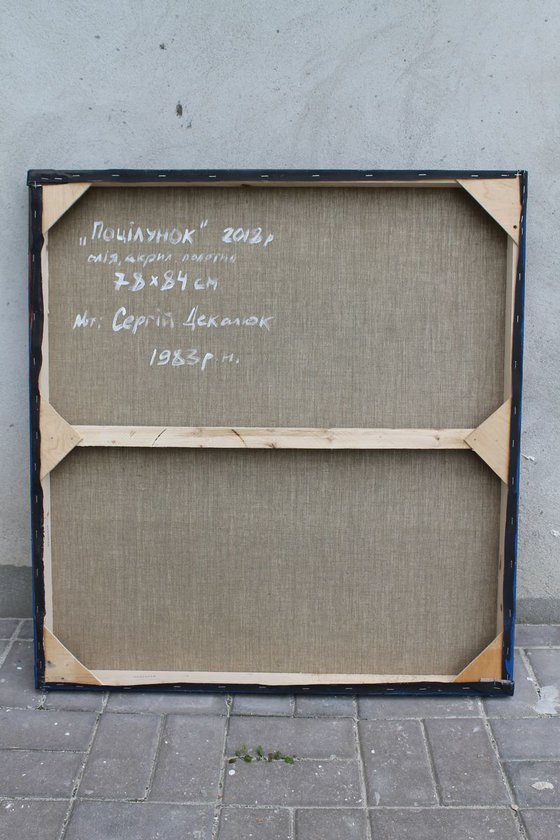 „Поцілунок" 2018р
олія, акрил полотно
78×84 см
Авт: Сергій Декалюк
1983р.н.